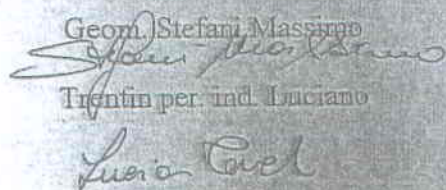 Geom. Stefani Massimo
Stefani Massimo
Trentin per. ind. Luciano